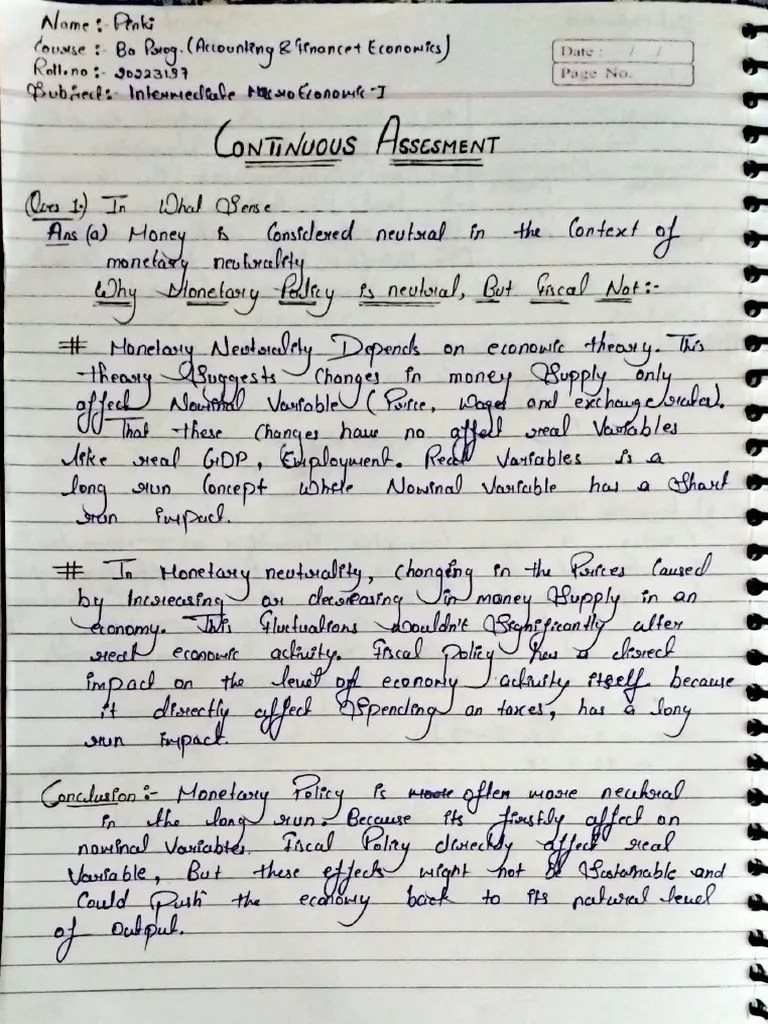 Name :- Pinki
Course :- Ba Prog. (Accounting & Finance + Economics)
Roll.no :- 20223137
Subject :- Intermediate Macro Economic - I
Date : / /
Page No.
CONTINUOUS ASSESMENT
(Ques 1.) In What Sense
Ans (a) Money is Considered neutral in the Context of
monetary neutrality
Why Monetary Policy is neutral, But Fiscal Not :-
# Monetary Neutrality Depends on economic theory. This
theory Suggests Changes in money Supply only
affect Nominal Variable (Price, Wages and exchange rates).
That these Changes have no affect real Variables
like real GDP, Employment. Real Variables is a
long run Concept Where Nominal Variable has a Short
run impact.
# In Monetary neutrality, changing in the Prices Caused
by Increasing or decreasing in money Supply in an
economy. This Fluctuations Wouldn't Significantly alter
real economic activity. Fiscal policy has a direct
impact on the level of economy activity itself because
it directly affect Spending an taxes, has a long
run impact.
Conclusion :- Monetary Policy is often more neutral
in the long run. Because its firstly affect on
nominal Variables. Fiscal Policy directly affect real
Variable, But these effects might not be Sustainable and
Could Push the economy back to its natural level
of output.